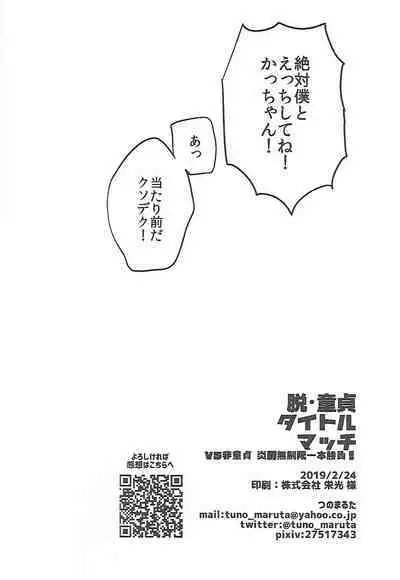 絶対僕と
えっちしてね！
かっちゃん！
あっ
当たり前だ
クソデク！
脱・童貞
タイトル
マッチ
VS非童貞 炎闘無制限一本勝負！
2019/2/24
印刷：株式会社 栄光 様
よろしければ
感想はこちらへ
つのまるた
mail:tuno_maruta@yahoo.co.jp
twitter:@tuno_maruta
pixiv:27517343